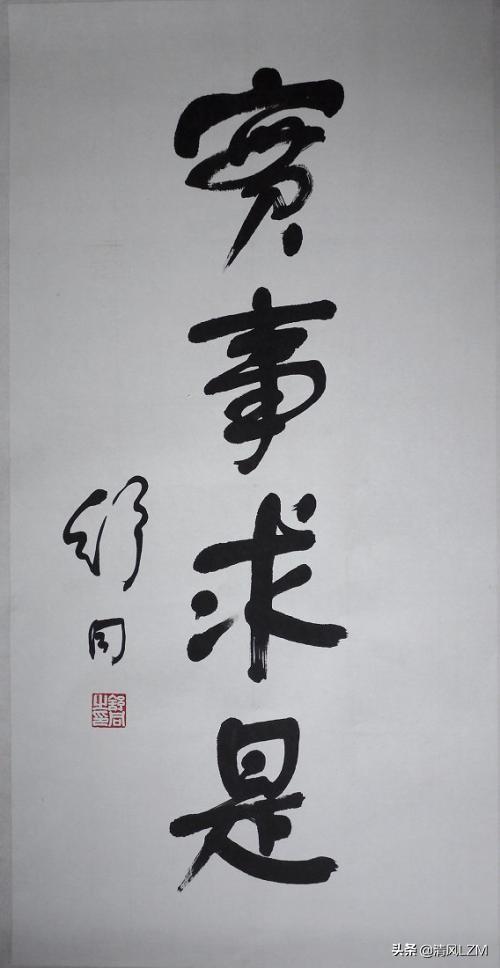 實事求是
舒同
舒同之印
头条 @清风LZM